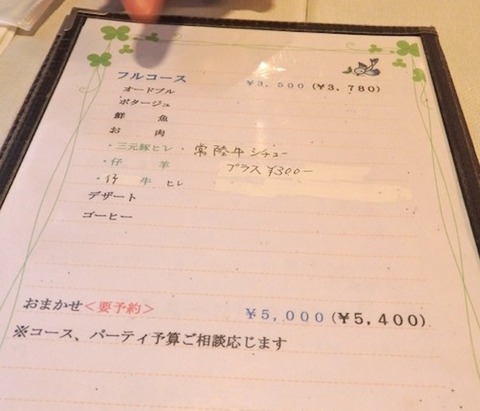 フルコース ¥3,500(¥3,780)
オードブル
ポタージュ
鮮 魚
お 肉
・三元豚ヒレ ・常陸牛シチュー
・仔 羊 プラス¥300-
・仔 牛 ヒレ
デザート
コーヒー
おまかせ<要予約> ¥5,000(¥5,400)
※コース、パーティ予算ご相談応じます